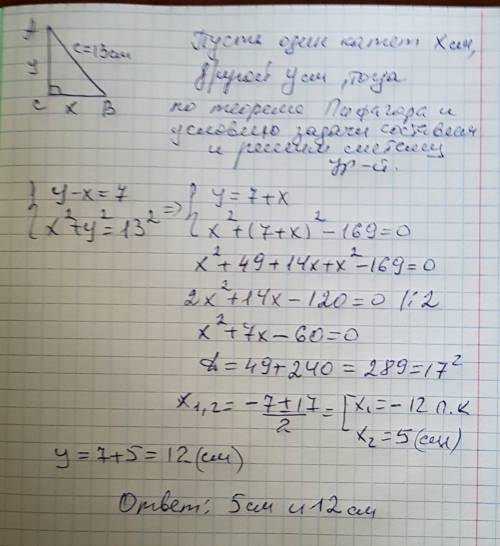 A
c=13см
y
C x B
Пусть один катет x см,
другой y см, тогда
по теореме Пифагора и
условию задачи составим
и решим систему
ур-й.
{ y-x=7 => { y=7+x
x²+y²=13² x²+(7+x)²-169=0
x²+49+14x+x²-169=0
2x²+14x-120=0 |:2
x²+7x-60=0
D=49+240=289=17²
x₁,₂= (-7±17)/2 = [ x₁=-12 п.к
x₂=5(см)
y=7+5=12(см)
Ответ: 5см и 12см